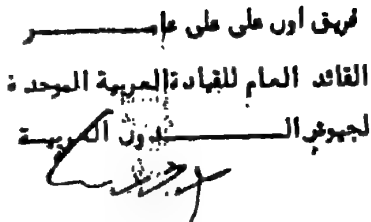 فريق اول على على عامر
القائد العام للقيادة العربية الموحدة
لجيوش الدول العربية